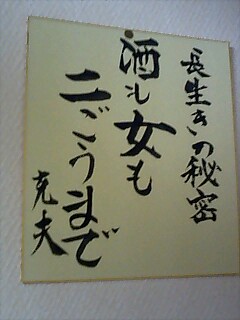 長生きの秘密
酒も女も
二ごうまで
克夫